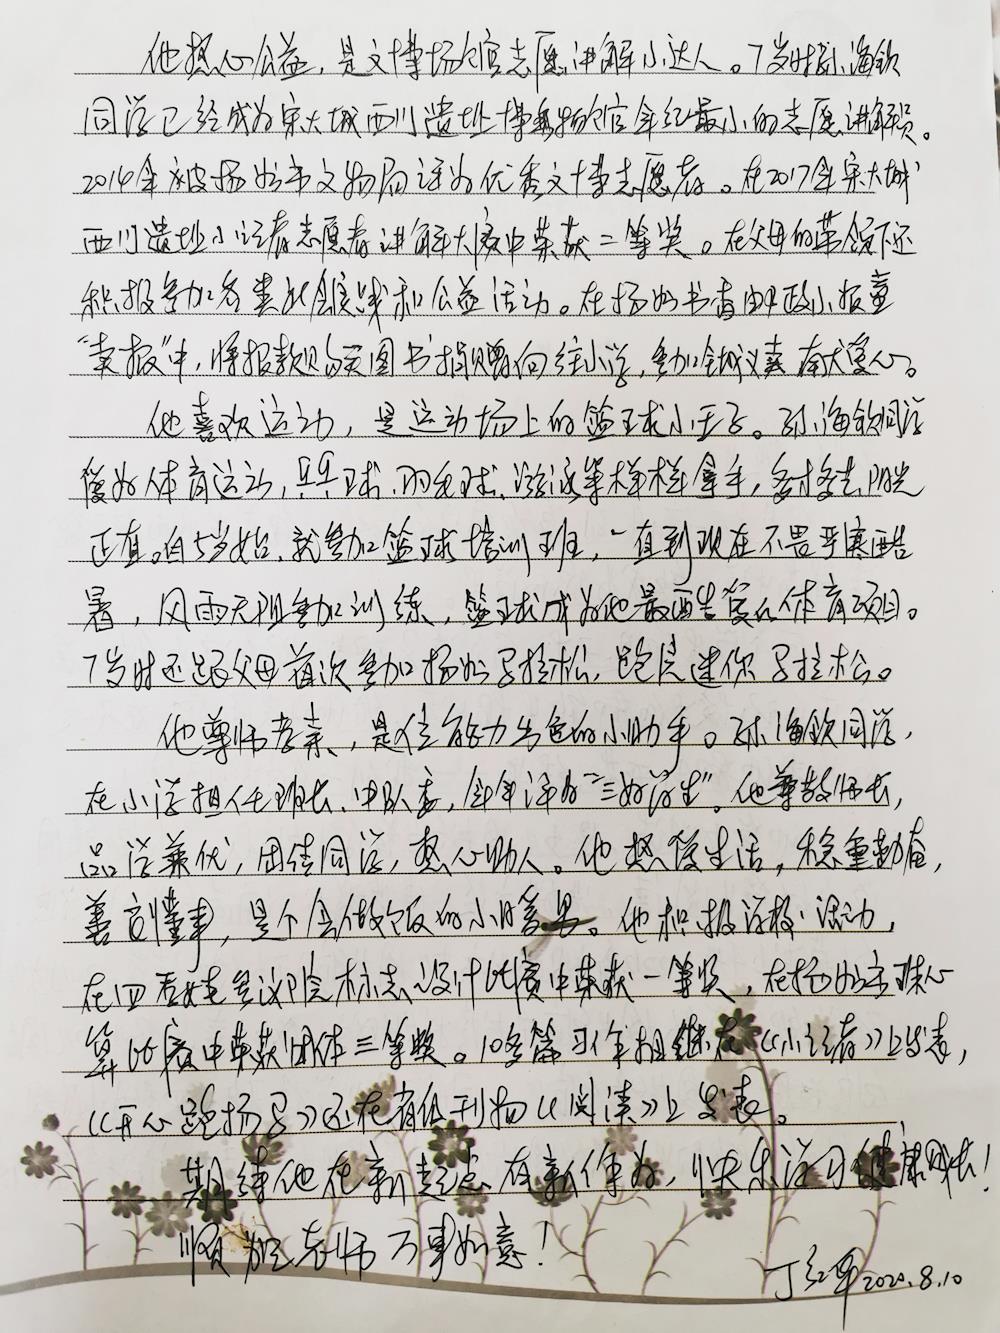 他热心公益，是文博场馆志愿讲解小达人。7岁时孙海钦
同学已经成为宋大城西门遗址博物馆年纪最小的志愿讲解员。
2014年被扬州市文物局评为优秀文博志愿者。在2017年宋大城
西门遗址小记者志愿者讲解大赛中荣获二等奖。在父母的带领下还
积极参加各类社会实践和公益活动。在扬州书香邮政小报童
“卖报”中，将报款购买图书捐赠向往小学，参加全城义卖 奉献爱心。
他喜欢运动，是运动场上的篮球小王子。孙海钦同学
爱好体育运动，乒乓球、羽毛球、游泳等样样拿手，阳光
正直。自5岁始，就参加篮球培训班，一直到现在不畏严寒酷
暑，风雨无阻参加训练，篮球成为他最爱的体育项目。
7岁时还跟父母首次参加扬州马拉松，跑完迷你马拉松。
他尊师孝亲，是位能力出色的小助手。孙海钦同学，
在小学担任班长、中队委，年年评为“三好学生”。他尊敬师长，
品学兼优，团结同学，热心助人。他热爱生活，稳重勤奋，
善良懂事，是个会做饭的小暖男。他积极学校活动，
在四季参议院标志设计比赛中荣获一等奖，在扬州市珠心
算比赛中荣获团体三等奖。10多篇习作相继在《小记者》上发表，
《开心跑扬马》还在省级刊物《阅读》上发表。
期待他在新起点有新作为，快乐学习 健康成长！
顺祝老师万事如意！
丁红军 2020.8.10